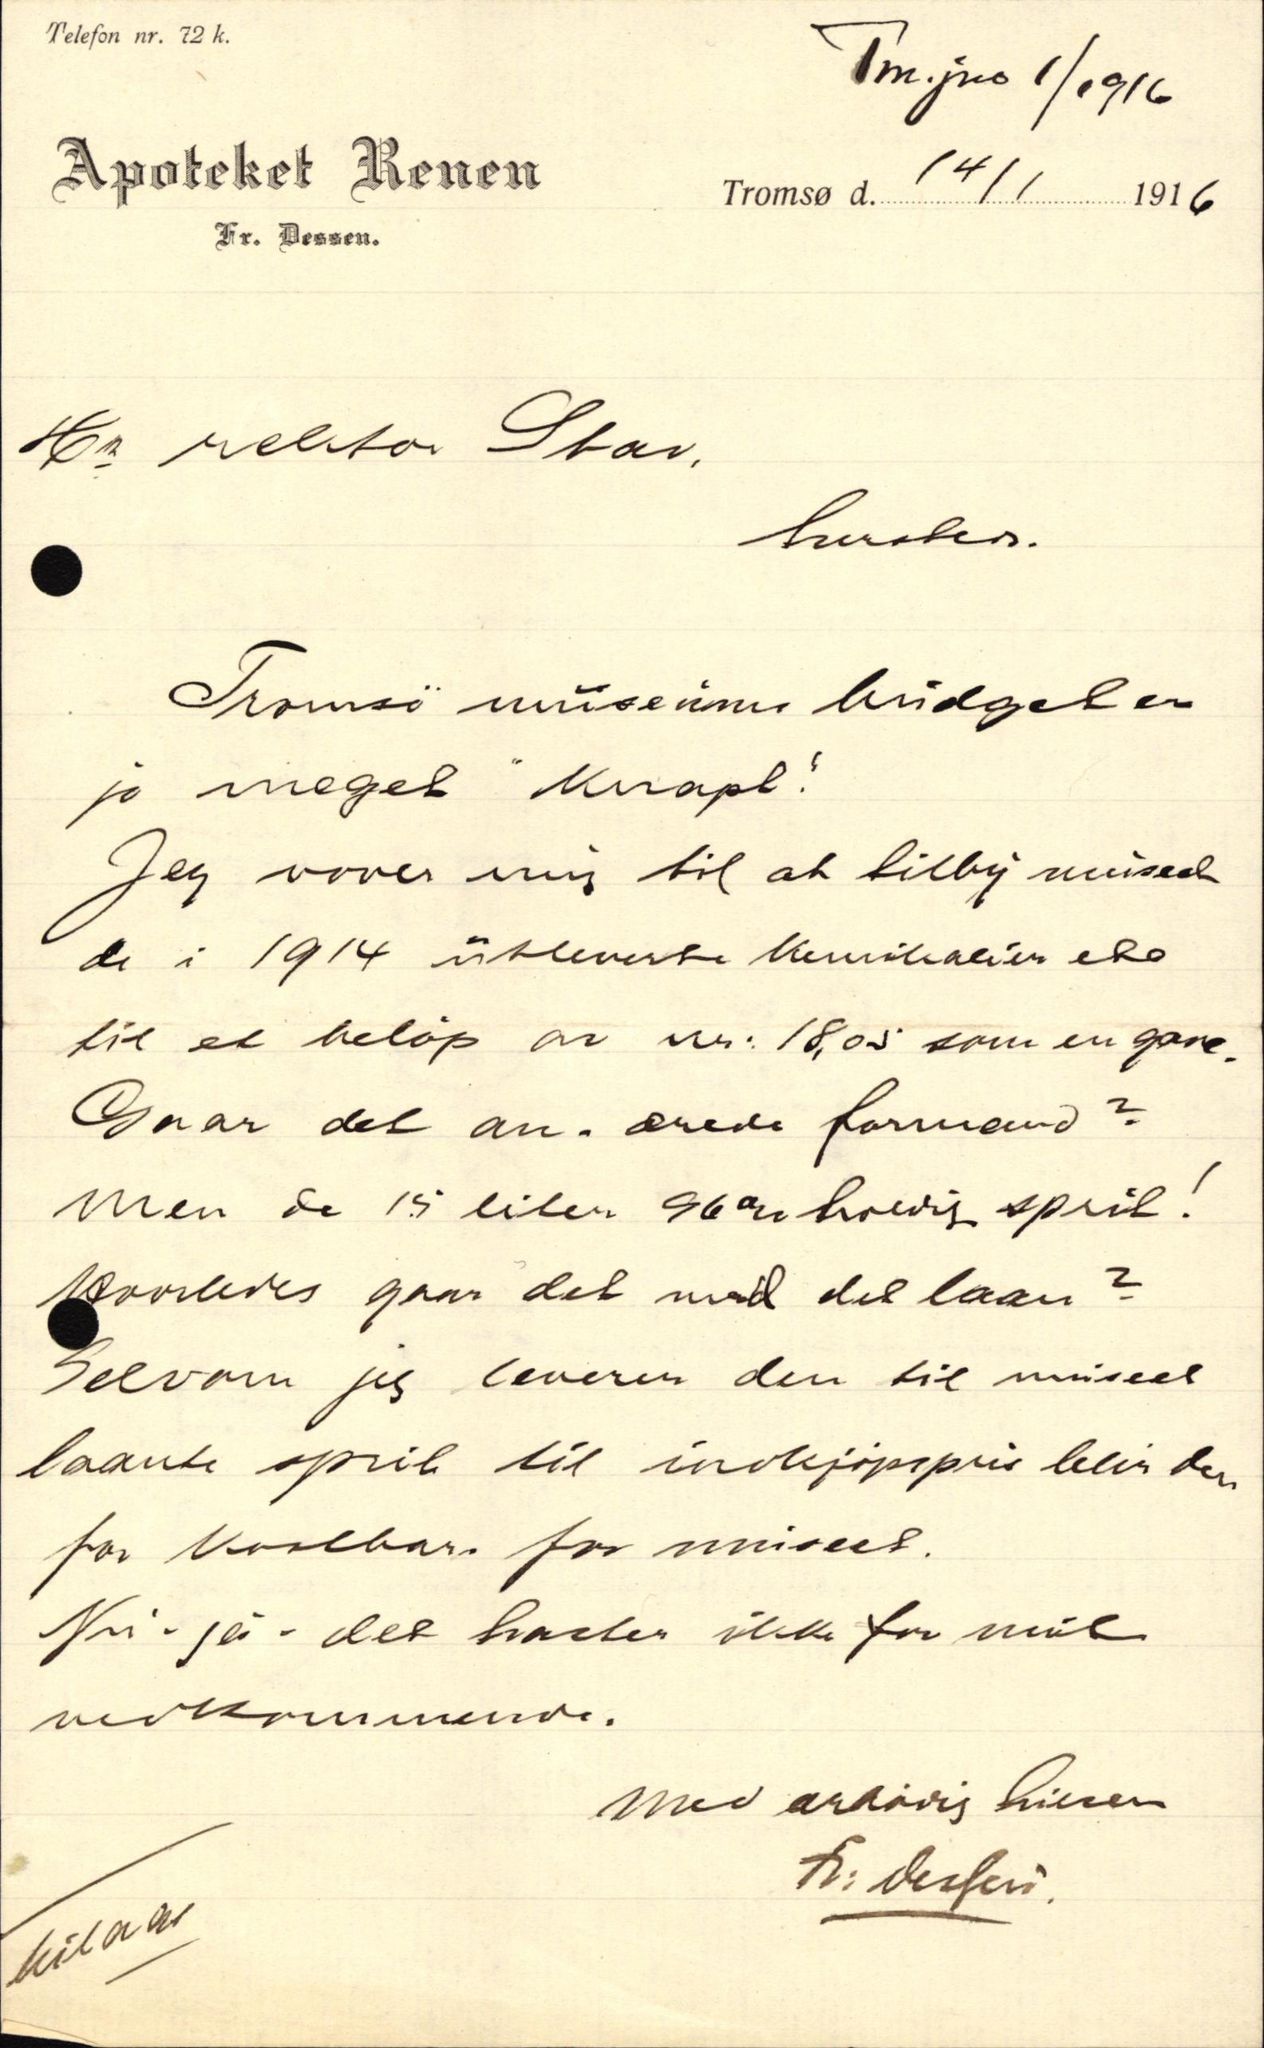 Telefon nr. 72 k.
Tm. jno 1/1916
Apoteket Renen
Fr. Dessen.
Tromsø d. 14/1 1916
Hr rektor
hersteds.
Tromsö museums budget er
jo meget "knapt"!
Jeg vover mig til at tilby museet
de i 1914 utleverte kemikalier etc
til et belöp av kr: 18,05 som en gave.
Gaar det an. ærede formand?
Men de 15 liter 96% holdig sprit!
Hvorledes gaar det med det laan?
Selvom jeg leverer den til museet
laante sprit til indkjöpspris blir den
for kostbar for museet.
Nu - ja - det haster ikke for mit
vedkommende.
Med ærbödig hilsen
Fr: Dessen.